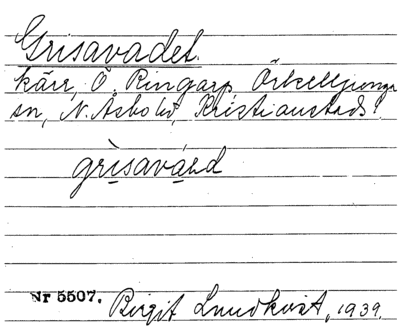 Grisavadet.
kärr, Ö. Ringarp, Örkelljunga
sn, N. Åsbo hd, Kristianstads l.
grisavád
Nr 5507. Birgit Lundkvist, 1939.